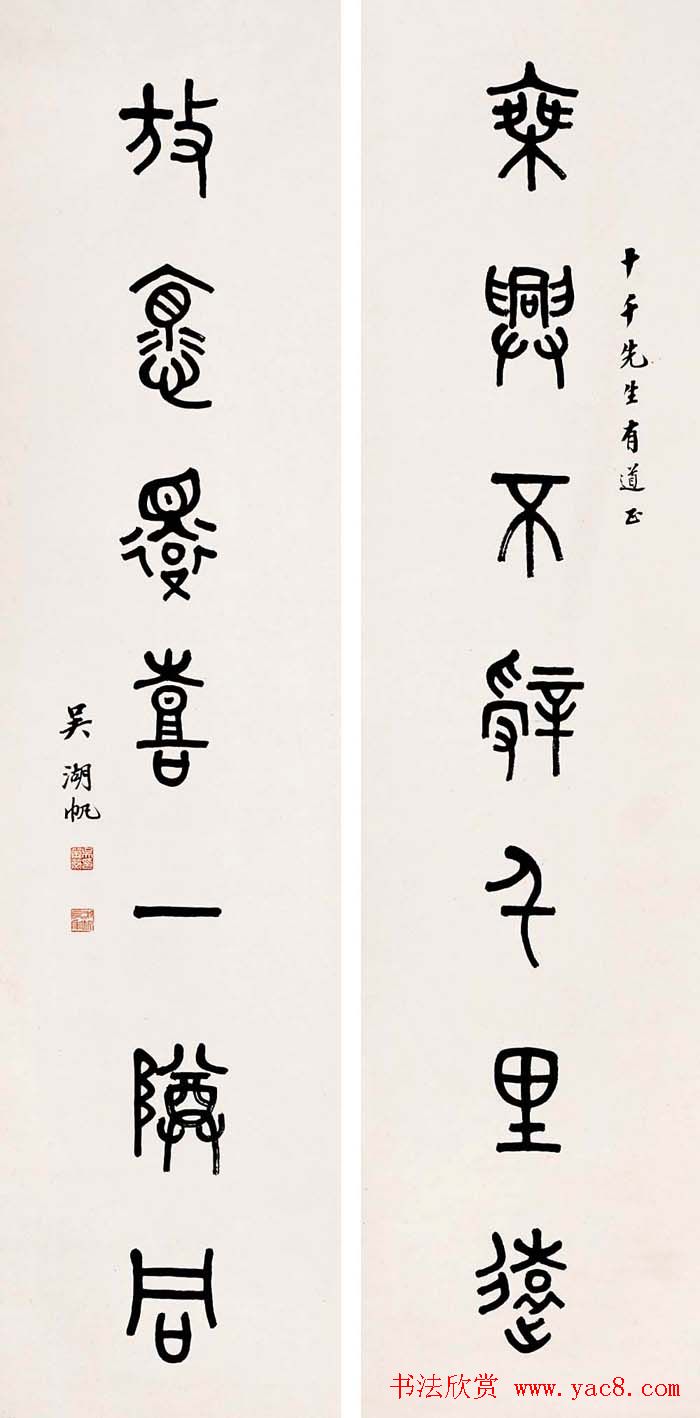 十千先生有道正
乘興不辭千里遠
放懷還喜一尊同
吳湖帆
书法欣赏 www.yac8.com